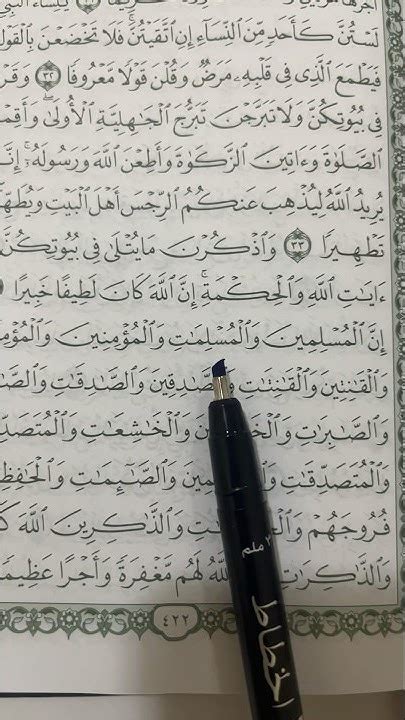 لَسْتُنَّ كَأَحَدٍ مِّنَ ٱلنِّسَآءِ إِنِ ٱتَّقَيْتُنَّ فَلَا تَخْضَعْنَ بِٱلْقَوْلِ
فَيَطْمَعَ ٱلَّذِى فِى قَلْبِهِۦ مَرَضٌ وَقُلْنَ قَوْلًا مَّعْرُوفًا ٣٢ وَقَرْنَ
فِى بُيُوتِكُنَّ وَلَا تَبَرَّجْنَ تَبَرُّجَ ٱلْجَٰهِلِيَّةِ ٱلْأُولَىٰ وَأَقِمْنَ
ٱلصَّلَوٰةَ وَءَاتِينَ ٱلزَّكَوٰةَ وَأَطِعْنَ ٱللَّهَ وَرَسُولَهُۥٓ إِنَّمَا
يُرِيدُ ٱللَّهُ لِيُذْهِبَ عَنكُمُ ٱلرِّجْسَ أَهْلَ ٱلْبَيْتِ وَيُطَهِّ
تَطْهِيرًا ٣٣ وَٱذْكُرْنَ مَا يُتْلَىٰ فِى بُيُوتِكُنَّ
ءَايَٰتِ ٱللَّهِ وَٱلْحِكْمَةِ إِنَّ ٱللَّهَ كَانَ لَطِيفًا خَبِيرًا
إِنَّ ٱلْمُسْلِمِينَ وَٱلْمُسْلِمَٰتِ وَٱلْمُؤْمِنِينَ وَٱلْمُؤْمِ
وَٱلْقَٰنِتِينَ وَٱلْقَٰنِتَٰتِ وَٱلصَّٰدِقِينَ وَٱلصَّٰدِقَٰتِ
وَٱلصَّٰبِرَٰتِ وَٱلْخَٰشِعَٰتِ وَٱلْمُتَصَدِّ
وَٱلْمُتَصَدِّقَٰتِ وَٱلصَّٰٓئِمَٰتِ وَٱلْحَٰفِظِ
فُرُوجَهُمْ وَٱلذَّٰكِرِينَ ٱللَّهَ
وَٱلذَّٰكِرَٰتِ لَهُم مَّغْفِرَةً وَأَجْرًا عَظِيمًا
٤٢٢
٢ ملم
الخطاط